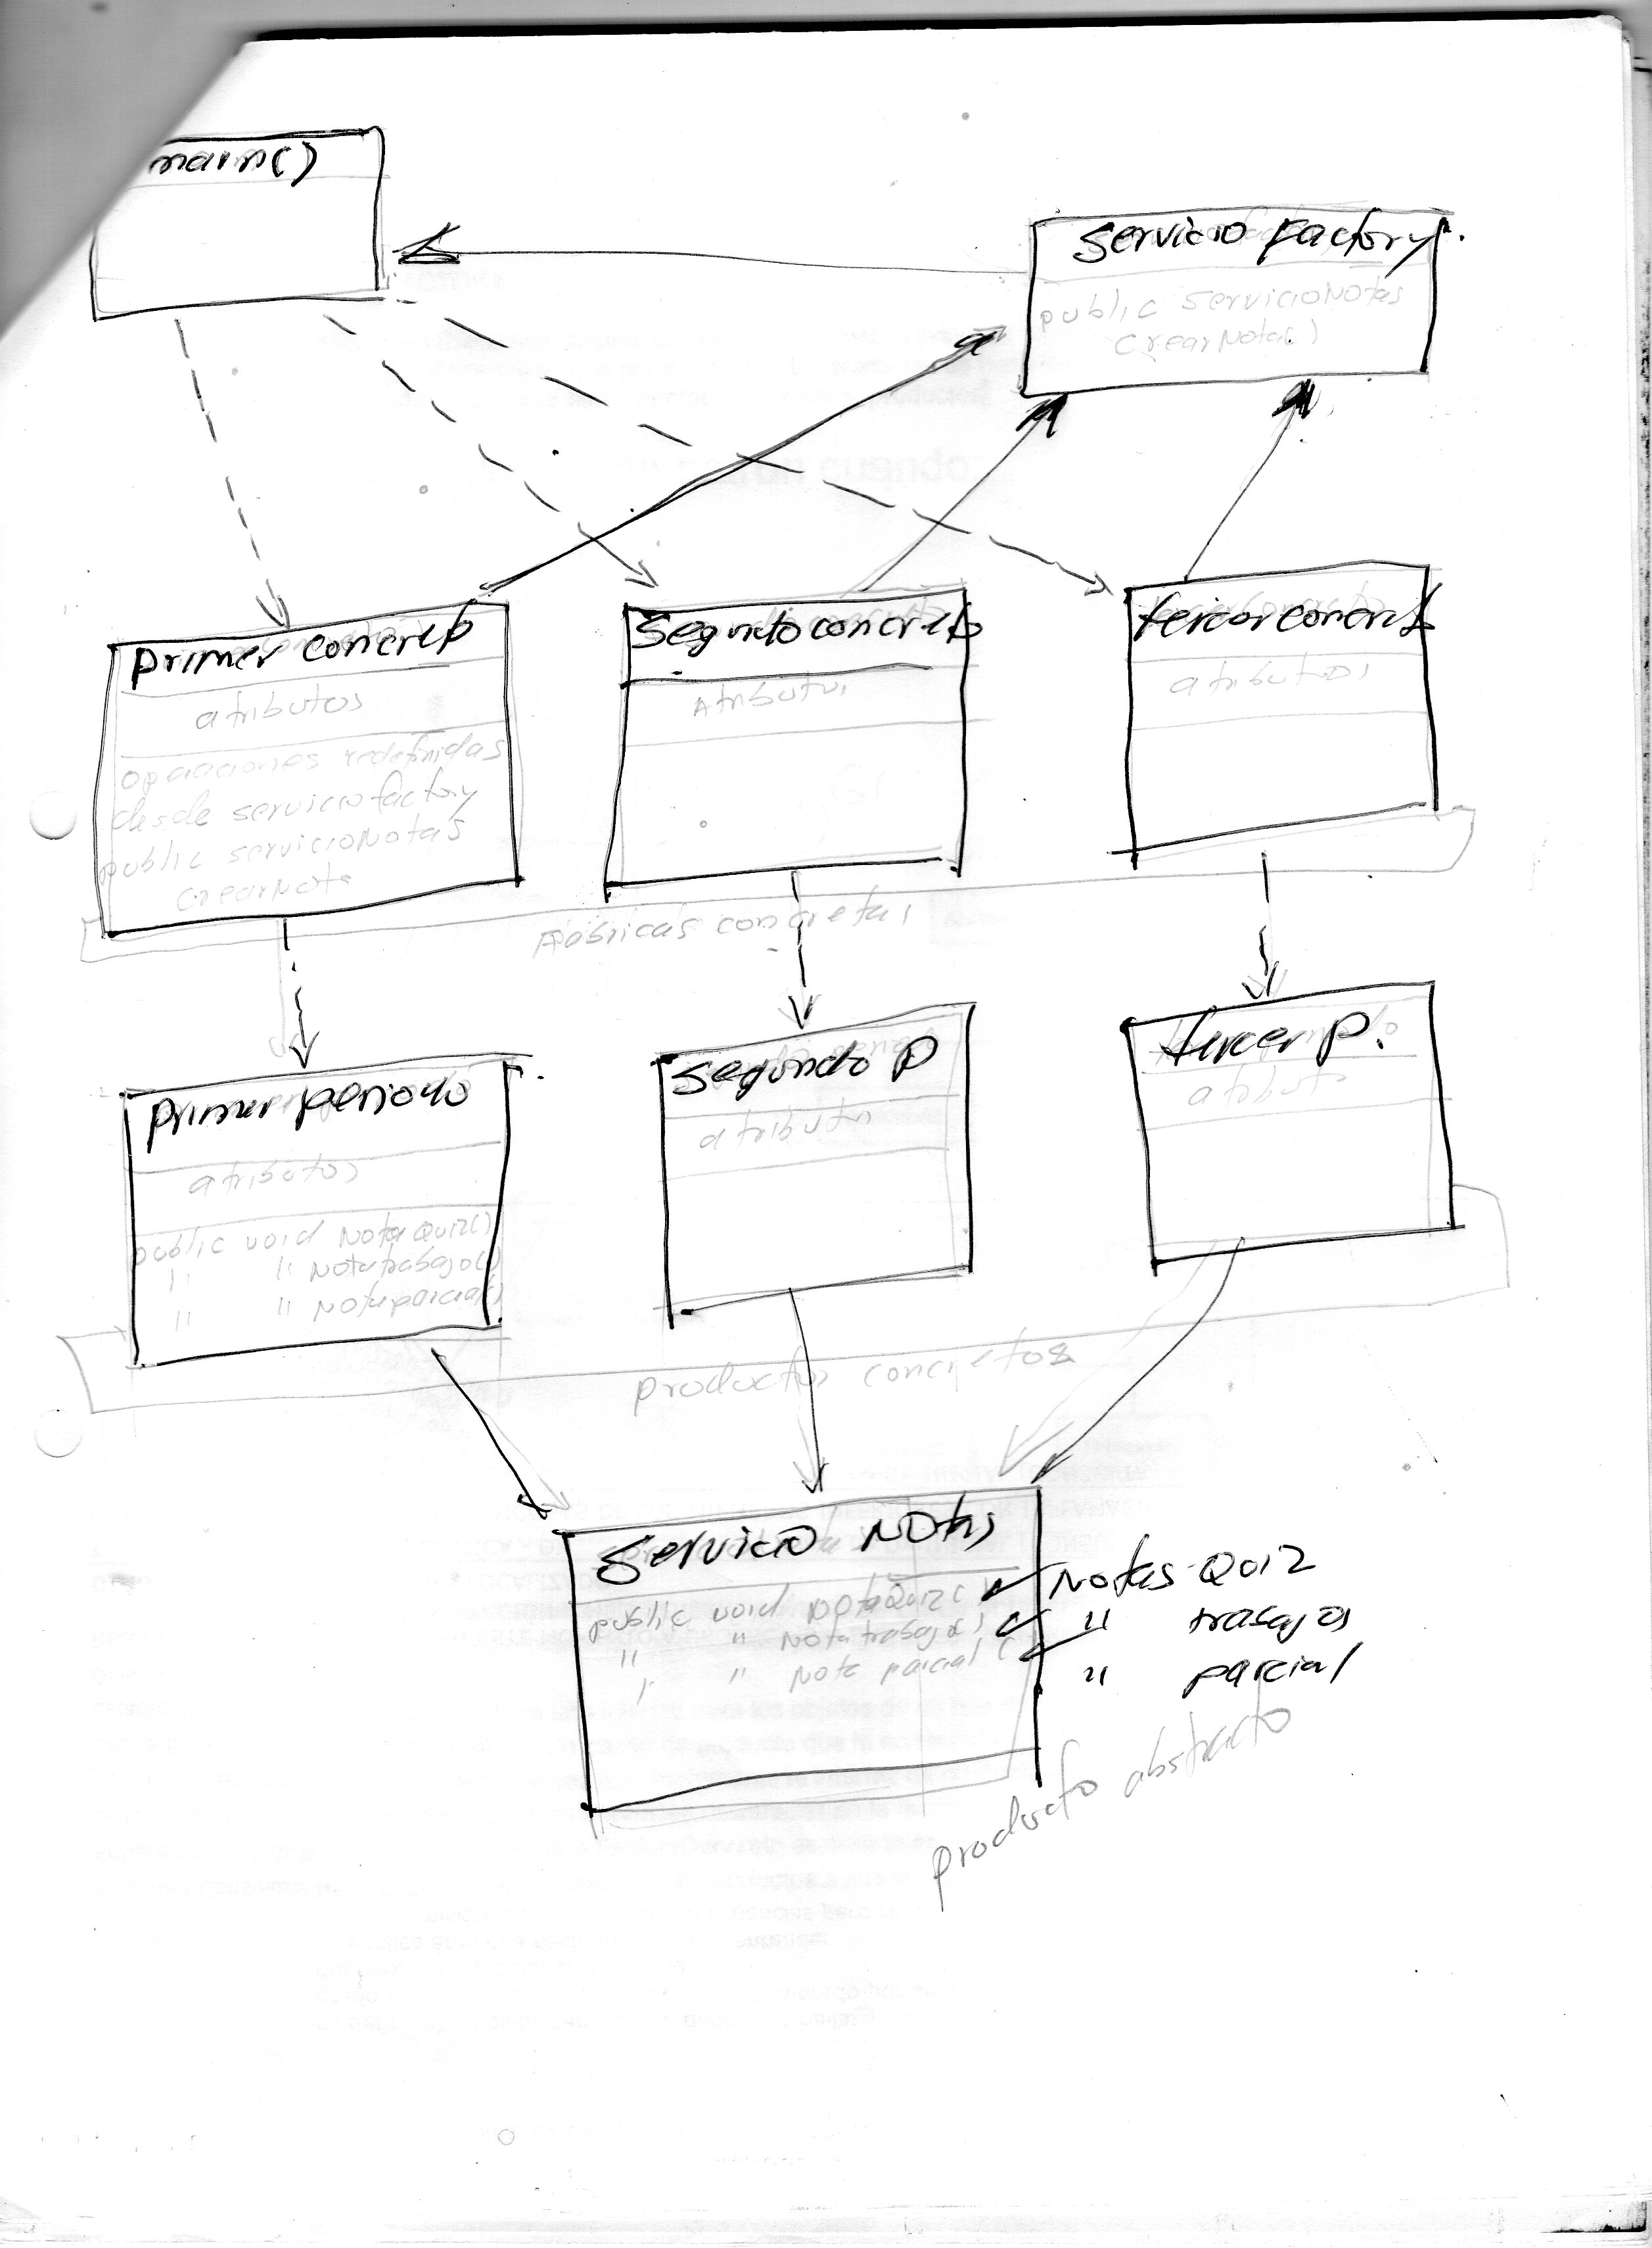 main()
Servicio Factory.
public servicioNotas
crearNotas()
primer concreto
atributos
operaciones redefinidas
desde servicio factory
public servicioNotas
crearNota
Segundo concreto
Atributos
tercer concreto
atributos
Fabricas concretas
primer periodo
atributos
public void NotaQuiz()
" " Notatrabajo()
" " Notaparcial()
Segundo P
atributos
tercer P.
atributo
productos concretos
Servicio Notas
public void NotaQuiz()
" " Nota trabajo()
" " Nota parcial (
Notas Quiz
" trabajos
" parcial
producto abstracto